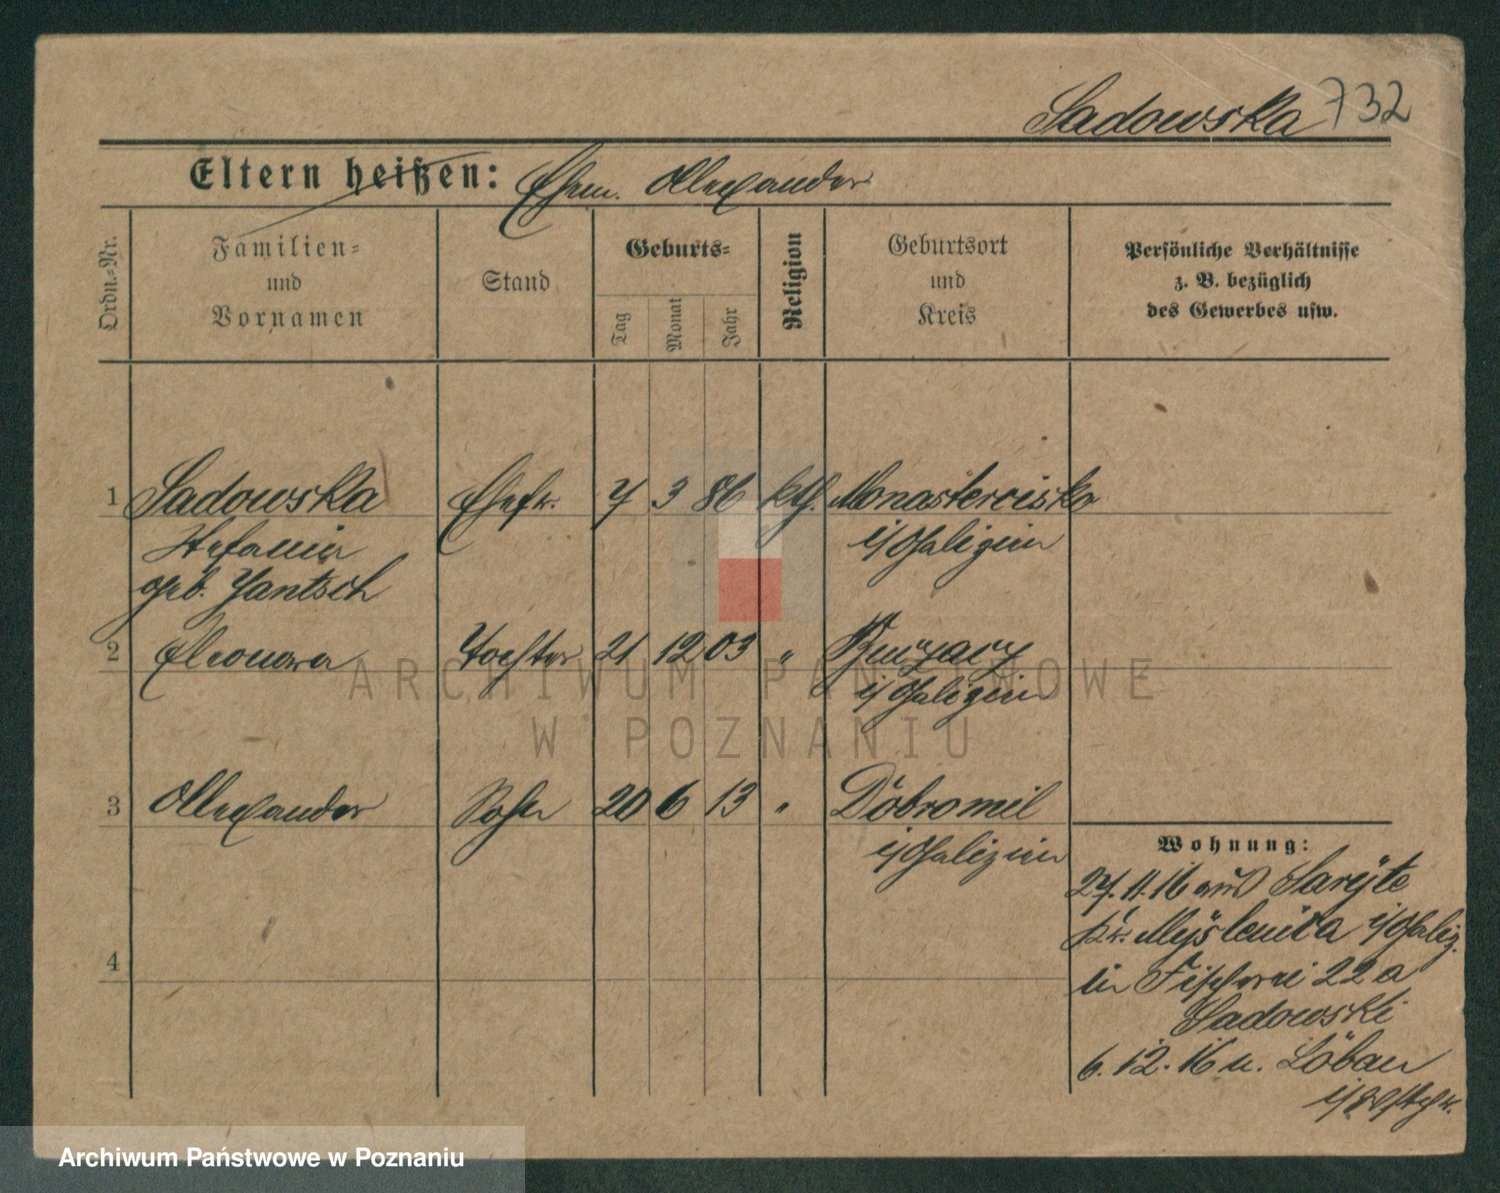 Sadowska 732
Eltern heißen: Ehem. Alexander
Ordn.-Nr.
Familien- und Vornamen
Stand
Geburts-
Tag Monat Jahr
Religion
Geburtsort und Kreis
Persönliche Verhältnisse
z. B. bezüglich
des Gewerbes usw.
1 Sadowska Ehefr. 7 3 86 kth. Monasterciska
Stefania i/Galizien
geb. Jantsch
2 Eleonora Tochter 21 12 03 " Buczacz
i/Galizien
3 Alexander Sohn 20 6 13 " Dobromil
i/Galizien
4
Wohnung:
27.11.16 aus
Kr. Myslenica i/Galiz.
in Fischerei 22a
Sadowski
6.12.16 n. Löbau
i/Westpr.
ARCHIWUM PAŃSTWOWE
W POZNANIU
Archiwum Państwowe w Poznaniu